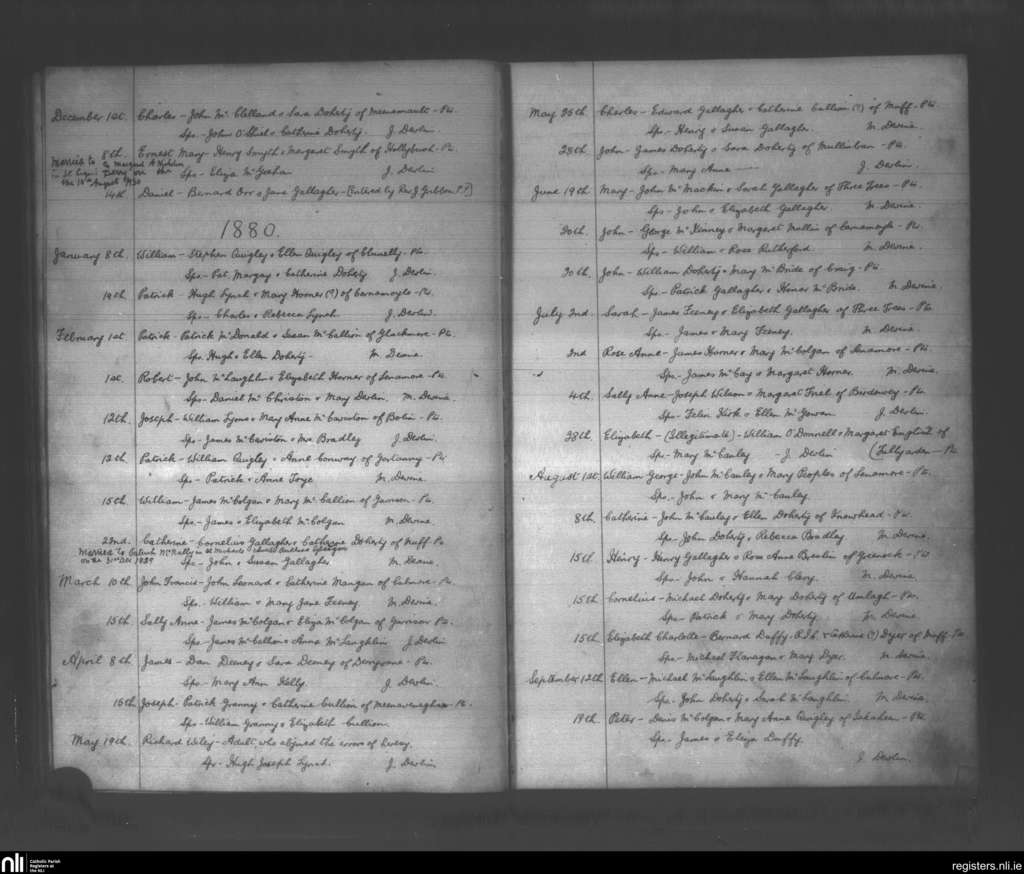 December 1st. Charles - John McClelland & Sara Doherty of - Ptr.
Sps - John O'Shiel & Catherine Doherty. J. Devlin.
8th. Ernest Mary - Henry Smyth & Margaret Smyth of Hollybush - Ptr.
Married to Margaret A
Sps - Eliza McGrahan J. Devlin.
in St Derry on the
the 15th August 1930
14th Daniel - Bernard Orr & Jane Gallagher - (entered by Rev J Gibbon P.P.)
1880.
January 8th. William - Stephen Quigley & Ellen Quigley of - Ptr.
Sps - Pat. & Catherine Doherty. J. Devlin.
14th Patrick - Hugh Lynch & Mary Horner (?) of Carnamoyle - Ptr.
Sps - Charles & Rebecca Lynch J. Devlin.
February 1st. Patrick - Patrick McDonald & Susan McCallion of Glackmore - Ptr.
Sps Hugh & Ellen Doherty - M. Devine.
1st. Robert - John McLaughlin & Elizabeth Horner of Lenamore - Ptr.
Sps - Daniel McChriston & Mary Devlin. M. Devine.
12th. Joseph - William Lyons & Mary Anne McCariston of - Ptr.
Sps - James McCariston & Mrs Bradley J. Devlin.
13th. Patrick - William Quigley & Anne Conway of - Ptr
Sps - Patrick & Anne Toye M. Devine.
15th. William - James McColgan & Mary McCallion of - Ptr.
Sps - James & Elizabeth McColgan M. Devine
22nd. Catherine - Cornelius Gallagher & Catherine Doherty of Muff Ptr
Married to Patrick McNally in St Michaels
on the 31st Dec 1889 Sps - John & Susan Gallagher M. Devine.
March 10th John Francis - John Leonard & Catherine Mangan of Culmore - Ptr.
Sps. William & Mary Jane Feeney. M. Devine.
15th. Sally Anne - James McColgan & Eliza McColgan of - Ptr.
Sps - James McCallion & Anna McLaughlin J. Devlin
April 8th James - Dan Deeney & Sara Deeney of - Ptr.
Sps - Mary Ann Kelly. J. Devlin.
16th Joseph - Patrick Granny & Catherine Cullion of - Ptr.
Sps - William Granny & Elizabeth Cullion.
May 19th. Richard Wiley - Adult, who abjured the errors of heresy.
Sp - Hugh Joseph Lynch. J. Devlin
May 25th Charles - Edward Gallagher & Catherine Cullion (?) of Muff - Ptr.
Sps - Henry & Susan Gallagher. M. Devine.
28th. John - James Doherty & Sara Doherty of Mullinban - Ptr.
Sps - Mary Anne J. Devlin.
June 19th. Mary - John McMackin & Sarah Gallagher of Three Trees - Ptr.
Sps - John & Elizabeth Gallagher M. Devine.
20th. John - George McKinney & Margaret of Carnamoyle - Ptr.
Sps - William & Rose Rutherford. M. Devine.
30th. John - William Doherty & Mary McBride of Craig - Ptr
Sps - Patrick Gallagher & Honor McBride. M. Devine.
July 2nd. Sarah - James Feeney & Elizabeth Gallagher of Three Trees - Ptr
Sps - James & Mary Feeney. M. Devine
2nd Rose Anne - James Horner & Mary McColgan of Lenamore - Ptr
Sps - James McCay & Margaret Horner. M. Devine.
4th. Sally Anne - Joseph Wilson & Margaret Friel of - Ptr
Sps - Felix Kirk & Ellen McGowan. J. Devlin.
28th. Elizabeth - (Illegitimate) - William O'Donnell & Margaret English of
Sps - Mary McCauley - J. Devlin (Tullyarden - Ptr
August 1st. William George - John McCauley & Mary Peoples of Lenamore - Ptr.
Sps. - John & Mary McCauley.
8th. Catherine - John McCauley & Ellen Doherty of Snowhead - Ptr.
Sps. John Doherty & Rebecca Bradley. M. Devine.
15th. Henry - Henry Gallagher & Rose Anne Breslin of Greenock - Ptr
Sps - John & Hannah Clery. M. Devine.
15th Cornelius - Michael Doherty & Mary Doherty of - Ptr.
Sps - Patrick & Mary Doherty. M. Devine
15th. Elizabeth Charlotte - Bernard Duffy. & Catherine (?) Dyer of Muff Ptr.
Sps - Michael Flanagan & Mary Dyer. M. Devine.
September 12th Ellen - Michael McLaughlin & Ellen McLaughlin of Culmore - Ptr.
Sps. John Doherty & Sarah McLaughlin. M. Devine.
19th. Peter - Denis McColgan & Mary Anne Quigley of Iskaheen - Ptr
Sps. James & Eliza Duffy.
J. Devlin.
nli
Catholic Parish
Registers at
the NLI
registers.nli.ie